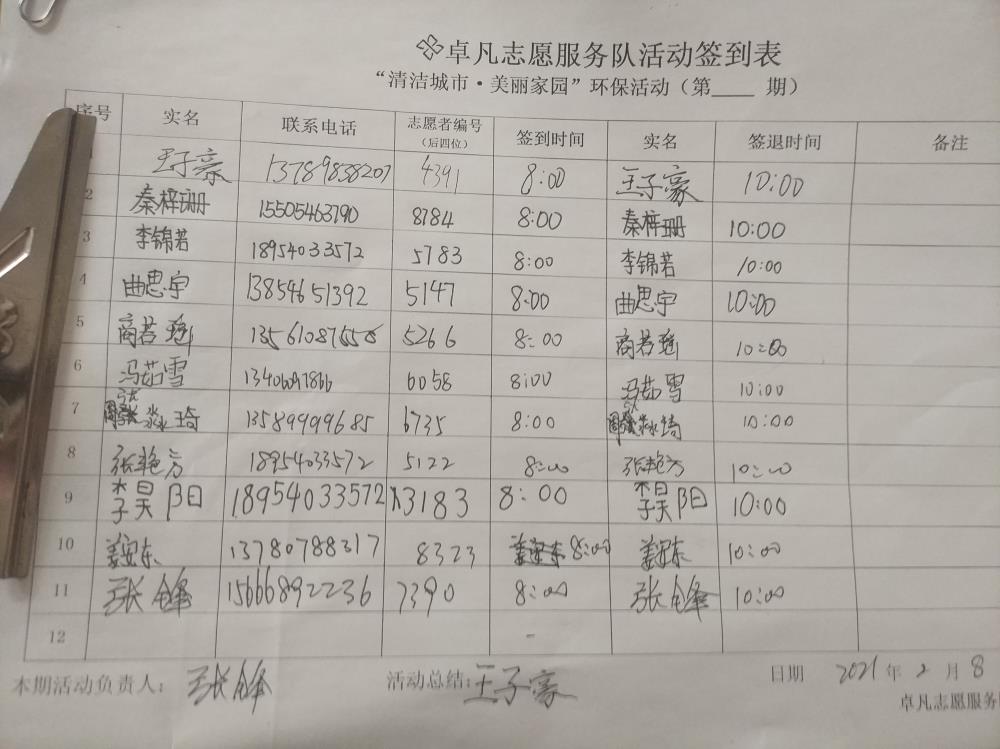 卓凡志愿服务队活动签到表
“清洁城市·美丽家园”环保活动（第____ 期）
序号 实名 联系电话 志愿者编号（后四位） 签到时间 实名 签退时间 备注
1 王子豪 13789838207 4391 8:00 王子豪 10:00
2 秦梓珊 15505463790 8784 8:00 秦梓珊 10:00
3 李锦若 18954033572 5783 8:00 李锦若 10:00
4 曲思宇 13854651392 5147 8:00 曲思宇 10:00
5 商若瑶 5266 8:00 商若瑶 10:00
6 冯茹雪 6058 8:00 冯茹雪 10:00
7 淼琦 13589999685 6735 8:00 淼琦 10:00
8 张艳方 18954033572 5122 8:00 张艳方 10:00
9 李昊阳 18954033572 3183 8:00 李昊阳 10:00
10 姜安东 13780788317 8323 8:00 姜安东 10:00
11 张锋 15666892236 7390 8:00 张锋 10:00
12
本期活动负责人：张锋 活动总结：王子豪 日期 2021年2月8
卓凡志愿服务